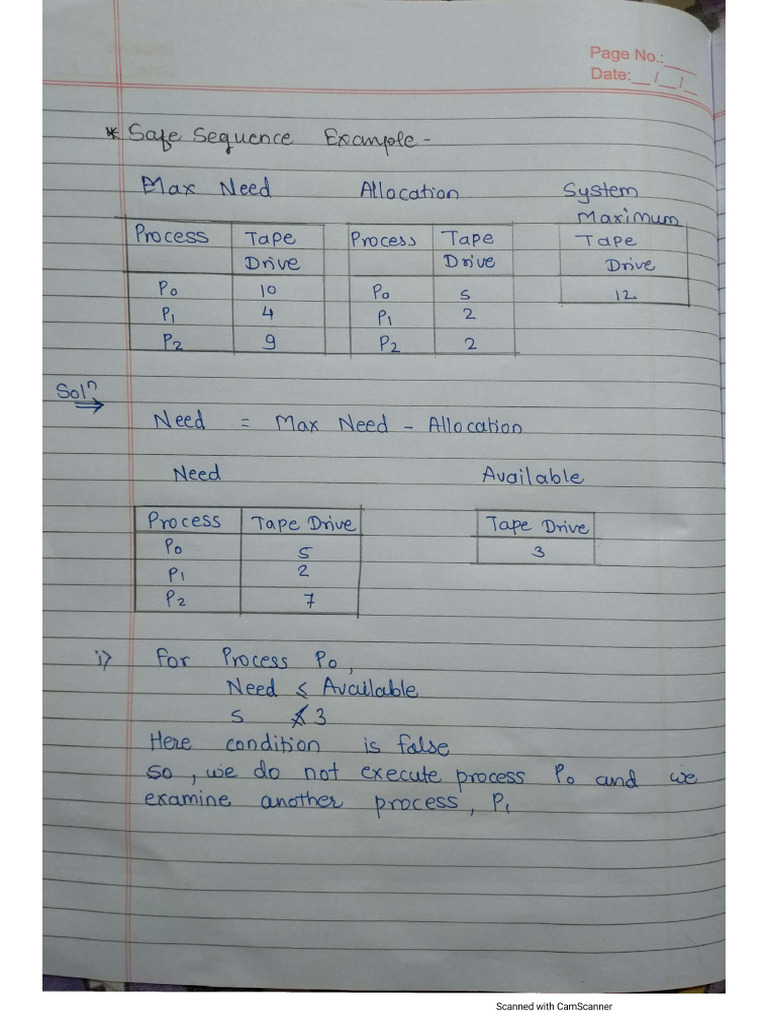 Page No.:
Date: / /
* Safe Sequence Example -
Max Need Allocation System
Maximum
Process Tape Process Tape Tape
Drive Drive Drive
P0 10 P0 5 12
P1 4 P1 2
P2 9 P2 2
Solⁿ
⇒
Need = Max Need - Allocation
Need Available
Process Tape Drive Tape Drive
P0 5 3
P1 2
P2 7
i) For Process P0,
Need ≤ Available
5 ≰ 3
Here condition is false
So, we do not execute process P0 and we
examine another process, P1
Scanned with CamScanner